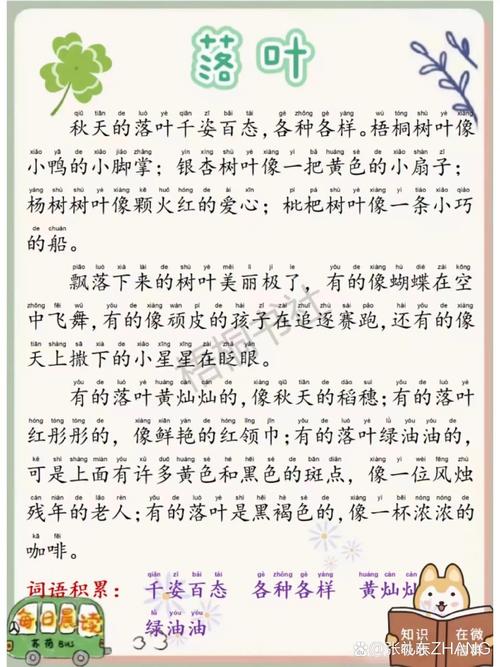 落叶
qiū tiān de luò yè qiān zī bǎi tài gè zhǒng gè yàng wú tóng shù yè xiàng
秋天的落叶千姿百态,各种各样。梧桐树叶像
xiǎo yā de xiǎo jiǎo zhǎng yín xìng shù yè xiàng yì bǎ huáng sè de xiǎo shàn zi
小鸭的小脚掌；银杏树叶像一把黄色的小扇子；
yáng shù shù yè xiàng kē huǒ hóng de ài xīn pí pá shù yè xiàng yì tiáo xiǎo qiǎo
杨树树叶像颗火红的爱心；枇杷树叶像一条小巧
de chuán
的船。
piāo luò xià lái de shù yè měi lì jí le yǒu de xiàng hú dié zài kōng
飘落下来的树叶美丽极了，有的像蝴蝶在空
zhōng fēi wǔ yǒu de xiàng wán pí de hái zi zài zhuī zhú sài pǎo hái yǒu de xiàng
中飞舞,有的像顽皮的孩子在追逐赛跑,还有的像
tiān shàng sǎ xià de xiǎo xīng xīng zài zhǎ yǎn
天上撒下的小星星在眨眼。
yǒu de luò yè huáng càn càn de xiàng qiū tiān de dào suì yǒu de luò yè
有的落叶黄灿灿的,像秋天的稻穗;有的落叶
hóng tóng tóng de xiàng xiān yàn de hóng lǐng jīn yǒu de luò yè lǜ yóu yóu de
红彤彤的，像鲜艳的红领巾;有的落叶绿油油的,
kě shì shàng miàn yǒu xǔ duō huáng sè hé hēi sè de bān diǎn xiàng yí wèi fēng zhú
可是上面有许多黄色和黑色的斑点，像一位风烛
cán nián de lǎo rén yǒu de luò yè shì hēi hè sè de xiàng yì bēi nóng nóng de
残年的老人;有的落叶是黑褐色的,像一杯浓浓的
kā fēi
咖啡。
qiān zī bǎi tài gè zhǒng gè yàng huáng càn càn
词语积累： 千姿百态 各种各样 黄灿灿
lǜ yóu yóu
绿油油
33
每日晨读
BUS
知识 在微
梧桐书社
ZHANG